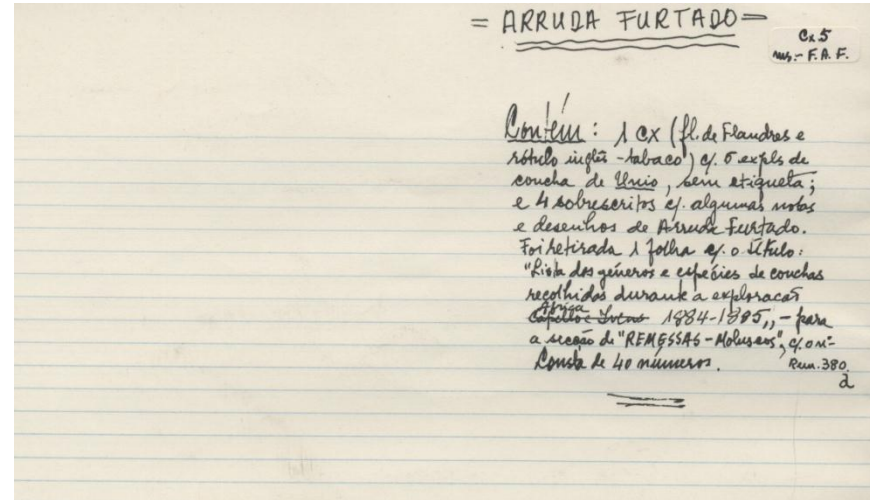 = ARRUDA FURTADO =
Cx 5
ms.- F. A. F.
Contém: 1 cx (fl. de Flandres e
rótulo inglês - tabaco) c/. 5 expls de
concha de Unio, sem etiqueta;
e 4 sobrescritos c/. algumas notas
e desenhos de Arruda Furtado.
Foi retirada 1 folha c/. o título:
"Lista dos géneros e espécies de conchas
recolhidos durante a exploração
África
Capello e Ivens 1884-1885,, - para
a secção de "REMESSAS - Moluscos", c/. o nº
Consta de 40 números. Rem. 380